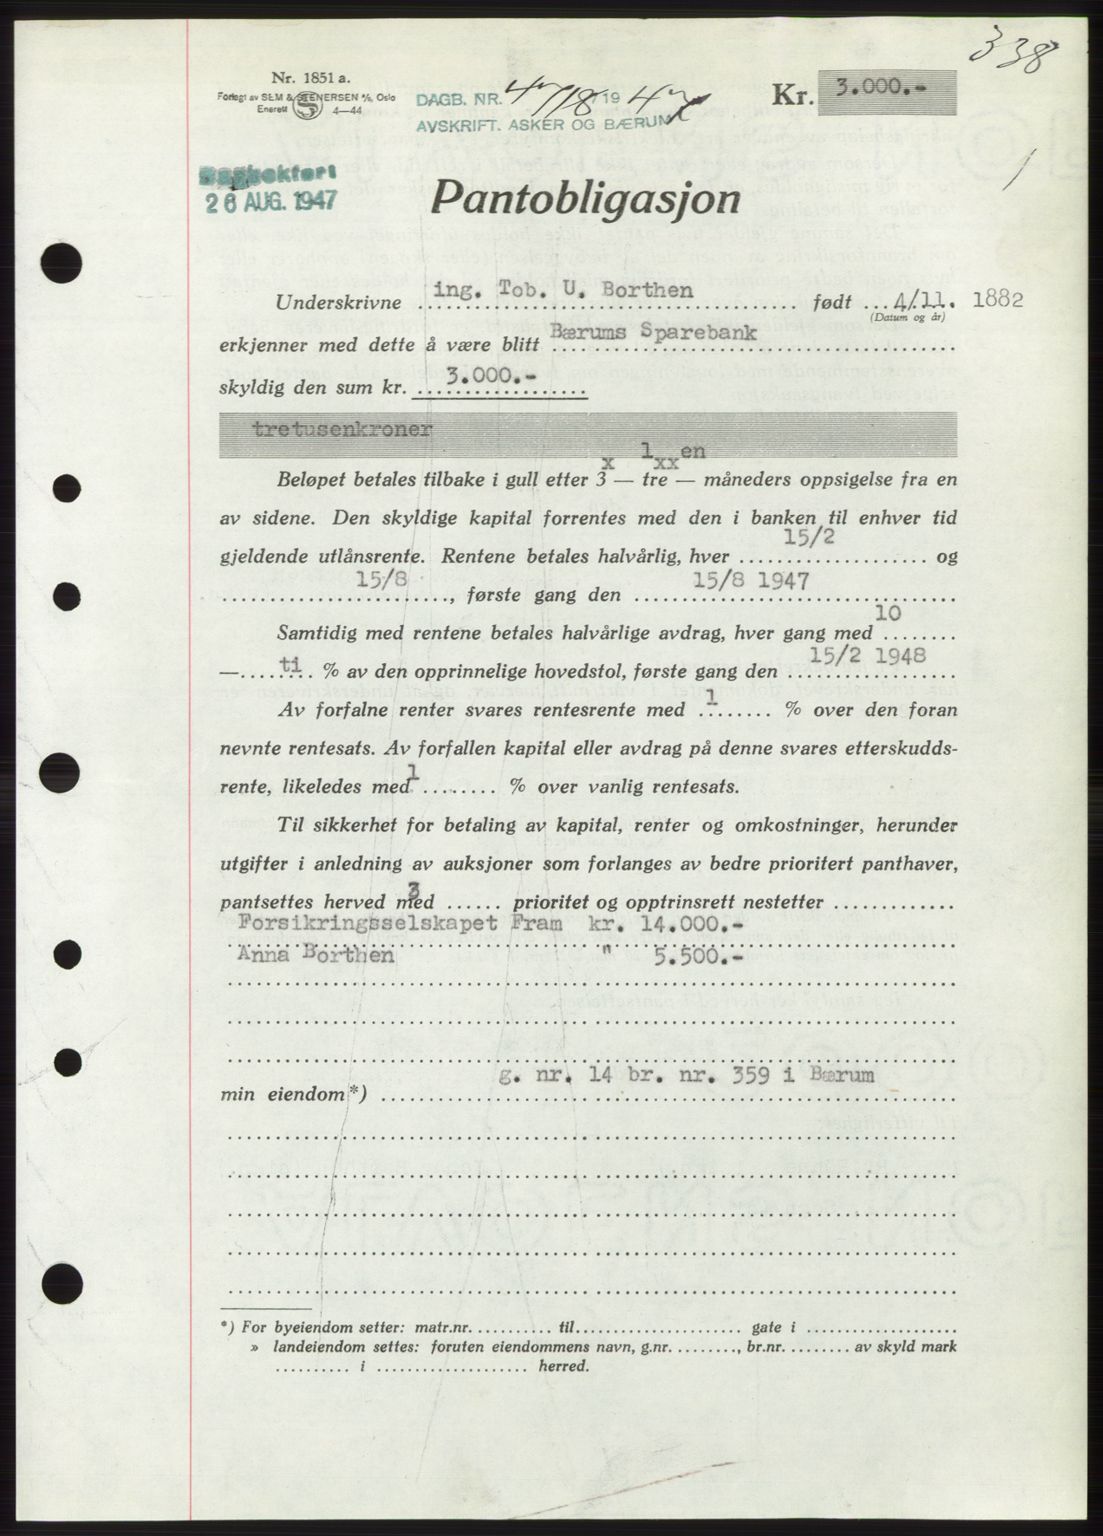 338
Nr. 1851 a.
Forlagt av SEM & STENERSEN A/S, Oslo
Enerett 4—44
DAGB. NR. 4718 / 19 47
AVSKRIFT. ASKER OG BÆRUM
Kr. 3.000.-
Dagbokført
26 AUG. 1947
Pantobligasjon
Underskrivne ing. Tob. U. Borthen født 4/11. 1882
(Datum og år)
erkjenner med dette å være blitt Bærums Sparebank
skyldig den sum kr. 3.000.-
tretusenkroner
1 en
x xx
Beløpet betales tilbake i gull etter 3 — tre — måneders oppsigelse fra en
av sidene. Den skyldige kapital forrentes med den i banken til enhver tid
gjeldende utlånsrente. Rentene betales halvårlig, hver 15/2 og
15/8, første gang den 15/8 1947
Samtidig med rentene betales halvårlige avdrag, hver gang med 10
— ti % av den opprinnelige hovedstol, første gang den 15/2 1948
Av forfalne renter svares rentesrente med 1 % over den foran
nevnte rentesats. Av forfallen kapital eller avdrag på denne svares etterskudds-
rente, likeledes med 1 % over vanlig rentesats.
Til sikkerhet for betaling av kapital, renter og omkostninger, herunder
utgifter i anledning av auksjoner som forlanges av bedre prioritert panthaver,
pantsettes herved med 3 prioritet og opptrinsrett nestetter
Forsikringsselskapet Fram kr. 14.000.-
Anna Borthen " 5.500.-
g. nr. 14 br. nr. 359 i Bærum
min eiendom*)
*) For byeiendom setter: matr.nr. til gate i
» landeiendom settes: foruten eiendommens navn, g.nr. , br.nr. av skyld mark
i herred.